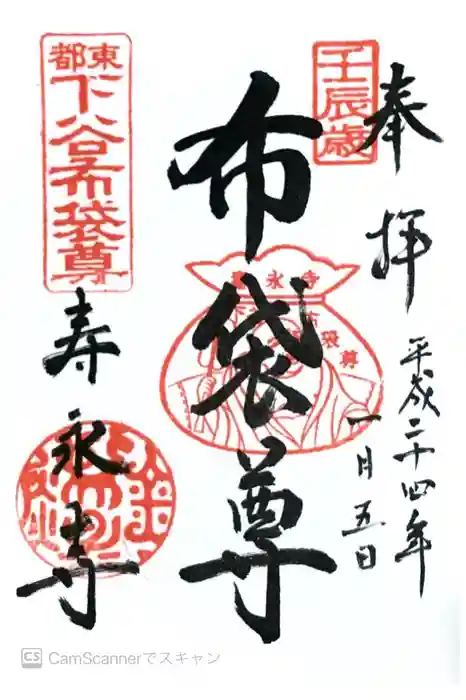 奉拝
壬辰歳
平成二十四年
一月五日
布袋尊
寿永寺
布袋尊
東都
下谷布袋尊
寿永寺
CamScannerでスキャン